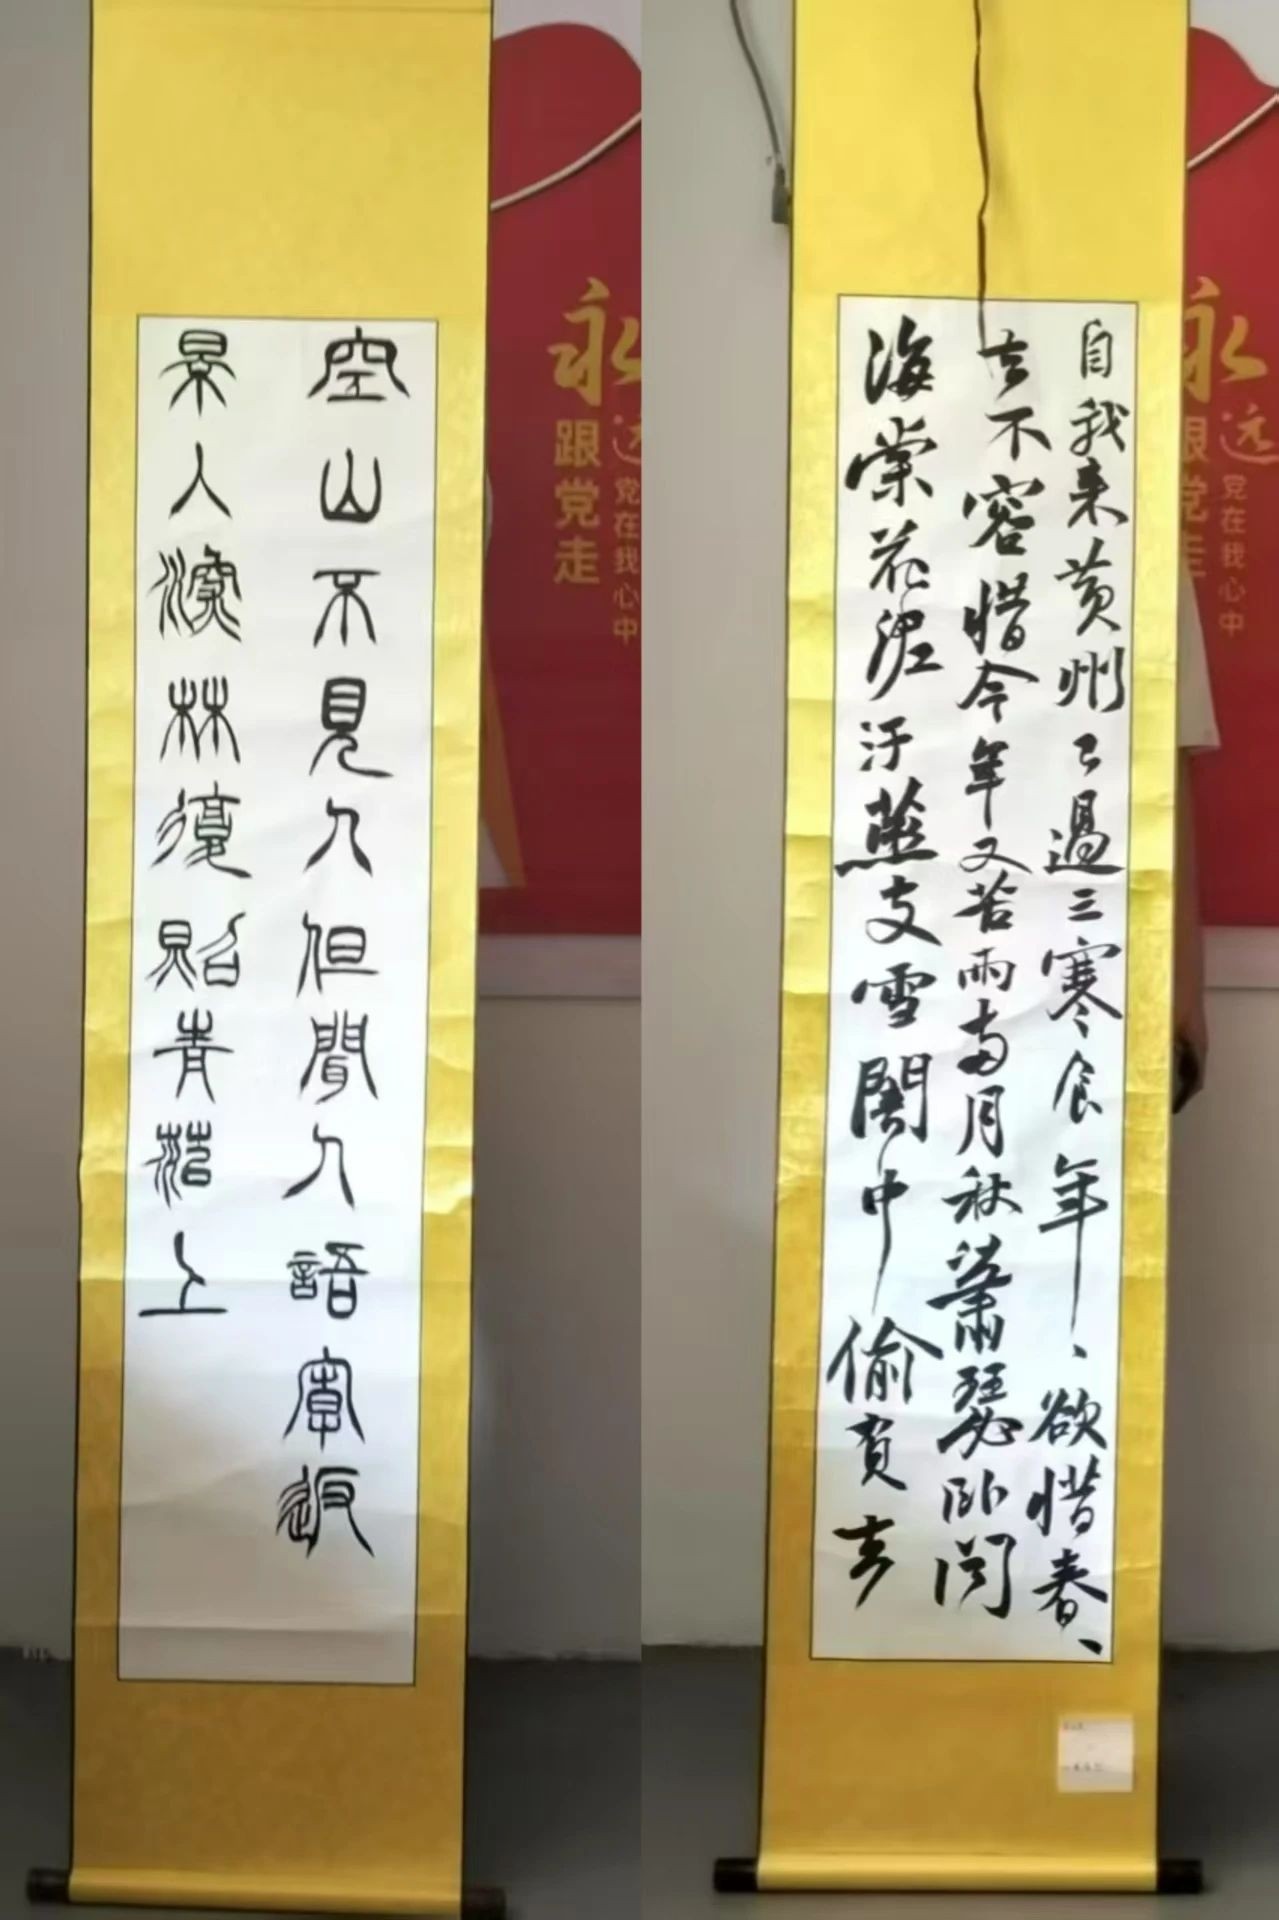 空山不見人但聞人語返
景人深林復青菭上
永远
跟党走
党在我心中
自我来黄州已過三寒食年、欲惜春、
去不容惜今年又苦雨兩月秋蕭瑟卧聞
海棠花泥汙燕支雪闇中偷負去
永远
跟党走
党在我心中